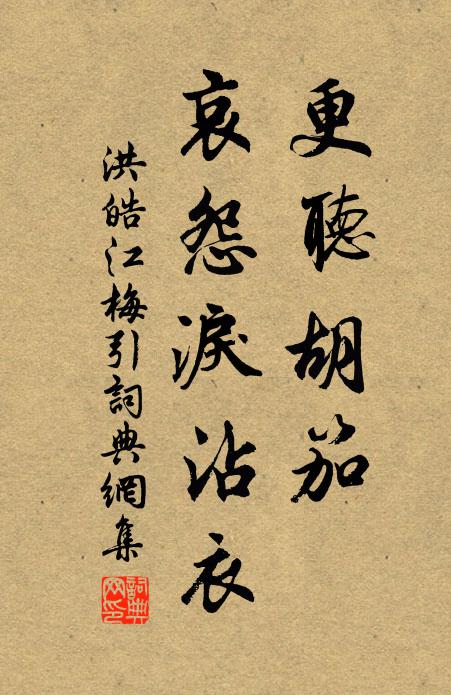 更聽胡笳
哀怨淚沾衣
洪皓江梅引詞典網集
詞典网印